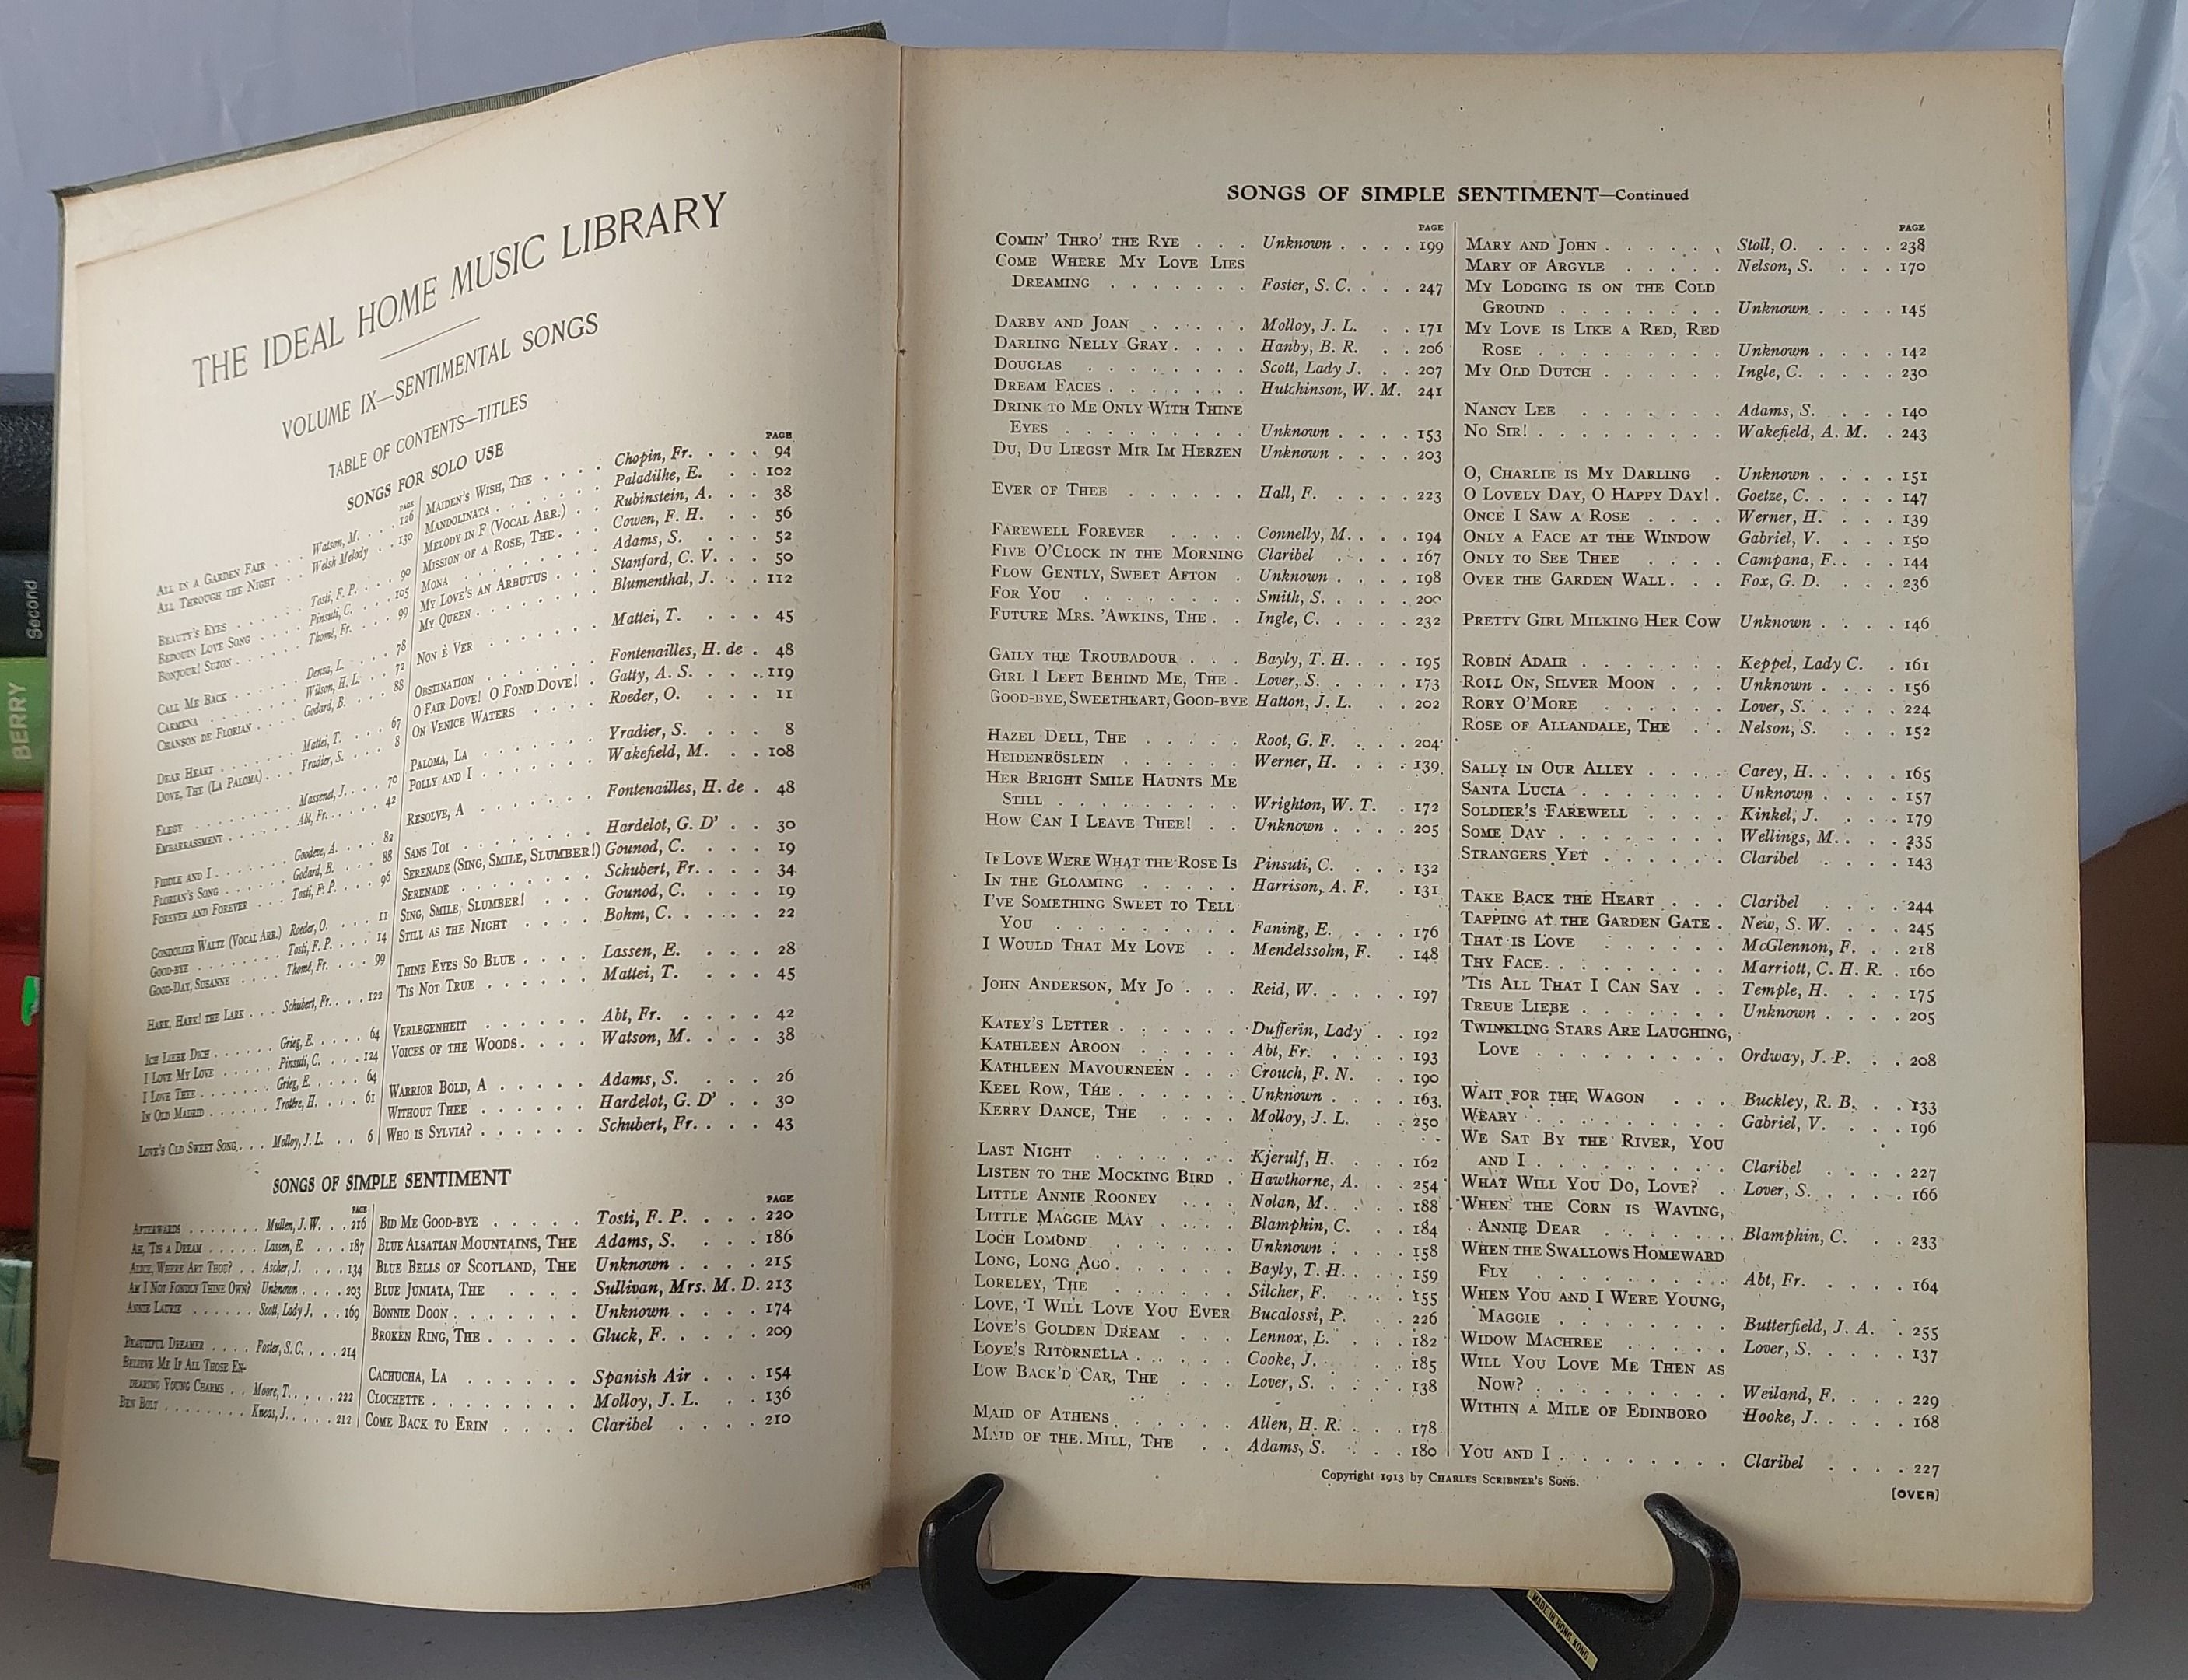 THE IDEAL HOME MUSIC LIBRARY
VOLUME IX—SENTIMENTAL SONGS
TABLE OF CONTENTS—TITLES
SONGS FOR SOLO USE
PAGE
ALL IN A GARDEN FAIR . . . Watson, M. . . . 126
ALL THROUGH THE NIGHT . . Welsh Melody . . 130
BEAUTY'S EYES . . . . . . Tosti, F. P. . . . 90
BEDOUIN LOVE SONG . . . . Pinsuti, C. . . . 105
BONJOUR! SUZON . . . . . . Thomé, Fr. . . . 99
CALL ME BACK . . . . . . Denza, L. . . . 78
CARMENA . . . . . . . . Wilson, H. L. . . . 72
CHANSON DE FLORIAN . . . . Godard, B. . . . 88
DEAR HEART . . . . . . . Mattei, T. . . . 67
DOVE, THE (LA PALOMA) . . . Yradier, S. . . . 8
ELEGY . . . . . . . . . Massenet, J. . . . 70
EMBARRASSMENT . . . . . . Abt, Fr. . . . 42
FIDDLE AND I . . . . . . . Goodeve, A. . . . 82
FLORIAN'S SONG . . . . . . Godard, B. . . . 88
FOREVER AND FOREVER . . . . Tosti, F. P. . . . 96
GONDOLIER WALTZ (VOCAL ARR.) Roeder, O. . . . 11
GOOD-BYE . . . . . . . . Tosti, F. P. . . . 14
GOOD-DAY, SUSANNE . . . . . Thomé, Fr. . . . 99
HARK, HARK! THE LARK . . . Schubert, Fr. . . . 122
ICH LIEBE DICH . . . . . . Grieg, E. . . . . 64
I LOVE MY LOVE . . . . . . Pinsuti, C. . . . 124
I LOVE THEE . . . . . . . Grieg, E. . . . . 64
IN OLD MADRID . . . . . . Trotère, H. . . . 61
LOVE'S OLD SWEET SONG . . . Molloy, J. L. . . 6
PAGE
MAIDEN'S WISH, THE . . . . Chopin, Fr. . . . 94
MANDOLINATA . . . . . . Paladilhe, E. . . 102
MELODY IN F (VOCAL ARR.) . . Rubinstein, A. . . 38
MISSION OF A ROSE, THE . . . Cowen, F. H. . . 56
MONA . . . . . . . . Adams, S. . . . 52
MY LOVE'S AN ARBUTUS . . . Stanford, C. V. . . 50
MY QUEEN . . . . . . . Blumenthal, J. . . 112
NON È VER . . . . . . . Mattei, T. . . . 45
OBSTINATION . . . . . . Fontenailles, H. de . 48
O FAIR DOVE! O FOND DOVE! . Gatty, A. S. . . . 119
ON VENICE WATERS . . . . Roeder, O. . . . 11
PALOMA, LA . . . . . . . Yradier, S. . . . 8
POLLY AND I . . . . . . Wakefield, M. . . 108
RESOLVE, A . . . . . . . Fontenailles, H. de . 48
SANS TOI . . . . . . . Hardelot, G. D' . . 30
SERENADE (SING, SMILE, SLUMBER!) Gounod, C. . . . 19
SERENADE . . . . . . . Schubert, Fr. . . . 34
SING, SMILE, SLUMBER! . . . Gounod, C. . . . 19
STILL AS THE NIGHT . . . . Bohm, C. . . . . 22
THINE EYES SO BLUE . . . . Lassen, E. . . . 28
'TIS NOT TRUE . . . . . . Mattei, T. . . . 45
VERLEGENHEIT . . . . . . Abt, Fr. . . . . 42
VOICES OF THE WOODS . . . . Watson, M. . . . 38
WARRIOR BOLD, A . . . . . Adams, S. . . . 26
WITHOUT THEE . . . . . . Hardelot, G. D' . . 30
WHO IS SYLVIA? . . . . . . Schubert, Fr. . . . 43
SONGS OF SIMPLE SENTIMENT
PAGE
AFTERWARDS . . . . . . . Mullen, J. W. . . 216
AH, 'TIS A DREAM . . . . . Lassen, E. . . . 187
ALICE, WHERE ART THOU? . . Ascher, J. . . . 134
AM I NOT FONDLY THINE OWN? Unknown . . . . 203
ANNIE LAURIE . . . . . . Scott, Lady J. . . 169
BEAUTIFUL DREAMER . . . . Foster, S. C. . . . 214
BELIEVE ME IF ALL THOSE EN-
DEARING YOUNG CHARMS . . Moore, T. . . . . 222
BEN BOLT . . . . . . . . Kneas, J. . . . . 212
PAGE
BID ME GOOD-BYE . . . . . Tosti, F. P. . . . 220
BLUE ALSATIAN MOUNTAINS, THE Adams, S. . . . 186
BLUE BELLS OF SCOTLAND, THE Unknown . . . . 215
BLUE JUNIATA, THE . . . . Sullivan, Mrs. M. D. 213
BONNIE DOON . . . . . . Unknown . . . . 174
BROKEN RING, THE . . . . . Gluck, F. . . . . 209
CACHUCHA, LA . . . . . . Spanish Air . . . 154
CLOCHETTE . . . . . . . Molloy, J. L. . . 136
COME BACK TO ERIN . . . . Claribel . . . . 210
SONGS OF SIMPLE SENTIMENT—Continued
PAGE
COMIN' THRO' THE RYE . . . Unknown . . . . 199
COME WHERE MY LOVE LIES
DREAMING . . . . . . . Foster, S. C. . . . 247
DARBY AND JOAN . . . . . Molloy, J. L. . . 171
DARLING NELLY GRAY . . . . Hanby, B. R. . . 206
DOUGLAS . . . . . . . . Scott, Lady J. . . 207
DREAM FACES . . . . . . . Hutchinson, W. M. 241
DRINK TO ME ONLY WITH THINE
EYES . . . . . . . . . Unknown . . . . 153
DU, DU LIEGST MIR IM HERZEN Unknown . . . . 203
EVER OF THEE . . . . . . Hall, F. . . . . 223
FAREWELL FOREVER . . . . Connelly, M. . . . 194
FIVE O'CLOCK IN THE MORNING Claribel . . . . 167
FLOW GENTLY, SWEET AFTON . Unknown . . . . 198
FOR YOU . . . . . . . . Smith, S. . . . . 200
FUTURE MRS. 'AWKINS, THE . . Ingle, C. . . . . 232
GAILY THE TROUBADOUR . . . Bayly, T. H. . . . 195
GIRL I LEFT BEHIND ME, THE . Lover, S. . . . . 173
GOOD-BYE, SWEETHEART, GOOD-BYE Hatton, J. L. . . 202
HAZEL DELL, THE . . . . . Root, G. F. . . . 204
HEIDENRÖSLEIN . . . . . . Werner, H. . . . 139
HER BRIGHT SMILE HAUNTS ME
STILL . . . . . . . . . Wrighton, W. T. . 172
HOW CAN I LEAVE THEE! . . Unknown . . . . 205
IF LOVE WERE WHAT THE ROSE IS Pinsuti, C. . . . 132
IN THE GLOAMING . . . . . Harrison, A. F. . . 131
I'VE SOMETHING SWEET TO TELL
YOU . . . . . . . . . Faning, E. . . . 176
I WOULD THAT MY LOVE . . . Mendelssohn, F. . . 148
JOHN ANDERSON, MY JO . . . Reid, W. . . . . 197
KATEY'S LETTER . . . . . . Dufferin, Lady . . 192
KATHLEEN AROON . . . . . Abt, Fr. . . . . 193
KATHLEEN MAVOURNEEN . . . Crouch, F. N. . . 190
KEEL ROW, THE . . . . . . Unknown . . . . 163
KERRY DANCE, THE . . . . Molloy, J. L. . . 250
LAST NIGHT . . . . . . . Kjerulf, H. . . . 162
LISTEN TO THE MOCKING BIRD . Hawthorne, A. . . 254
LITTLE ANNIE ROONEY . . . Nolan, M. . . . 188
LITTLE MAGGIE MAY . . . . Blamphin, C. . . 184
LOCH LOMOND . . . . . . Unknown . . . . 158
LONG, LONG AGO . . . . . . Bayly, T. H. . . . 159
LORELEY, THE . . . . . . Silcher, F. . . . 155
LOVE, I WILL LOVE YOU EVER Bucalossi, P. . . 226
LOVE'S GOLDEN DREAM . . . Lennox, L. . . . 182
LOVE'S RITORNELLA . . . . . Cooke, J. . . . . 185
LOW BACK'D CAR, THE . . . Lover, S. . . . . 138
MAID OF ATHENS . . . . . . Allen, H. R. . . . 178
MAID OF THE MILL, THE . . Adams, S. . . . 180
PAGE
MARY AND JOHN . . . . . . Stoll, O. . . . . 238
MARY OF ARGYLE . . . . . Nelson, S. . . . 170
MY LODGING IS ON THE COLD
GROUND . . . . . . . . Unknown . . . . 145
MY LOVE IS LIKE A RED, RED
ROSE . . . . . . . . . Unknown . . . . 142
MY OLD DUTCH . . . . . . Ingle, C. . . . . 230
NANCY LEE . . . . . . . Adams, S. . . . 140
NO SIR! . . . . . . . . Wakefield, A. M. . 243
O, CHARLIE IS MY DARLING . Unknown . . . . 151
O LOVELY DAY, O HAPPY DAY! . Goetze, C. . . . . 147
ONCE I SAW A ROSE . . . . Werner, H. . . . 139
ONLY A FACE AT THE WINDOW Gabriel, V. . . . 150
ONLY TO SEE THEE . . . . Campana, F. . . . 144
OVER THE GARDEN WALL . . . Fox, G. D. . . . 236
PRETTY GIRL MILKING HER COW Unknown . . . . 146
ROBIN ADAIR . . . . . . Keppel, Lady C. . 161
ROLL ON, SILVER MOON . . . Unknown . . . . 156
RORY O'MORE . . . . . . Lover, S. . . . . 224
ROSE OF ALLANDALE, THE . . Nelson, S. . . . 152
SALLY IN OUR ALLEY . . . . Carey, H. . . . . 165
SANTA LUCIA . . . . . . . Unknown . . . . 157
SOLDIER'S FAREWELL . . . . Kinkel, J. . . . 179
SOME DAY . . . . . . . . Wellings, M. . . . 235
STRANGERS YET . . . . . . Claribel . . . . 143
TAKE BACK THE HEART . . . Claribel . . . . 244
TAPPING AT THE GARDEN GATE . New, S. W. . . . 245
THAT IS LOVE . . . . . . McGlennon, F. . . 218
THY FACE . . . . . . . . Marriott, C. H. R. . 160
'TIS ALL THAT I CAN SAY . . Temple, H. . . . 175
TREUE LIEBE . . . . . . . Unknown . . . . 205
TWINKLING STARS ARE LAUGHING,
LOVE . . . . . . . . . Ordway, J. P. . . 208
WAIT FOR THE WAGON . . . Buckley, R. B. . . 133
WEARY . . . . . . . . . Gabriel, V. . . . 196
WE SAT BY THE RIVER, YOU
AND I . . . . . . . . . Claribel . . . . 227
WHAT WILL YOU DO, LOVE? . Lover, S. . . . . 166
WHEN THE CORN IS WAVING,
ANNIE DEAR . . . . . . Blamphin, C. . . 233
WHEN THE SWALLOWS HOMEWARD
FLY . . . . . . . . . Abt, Fr. . . . . 164
WHEN YOU AND I WERE YOUNG,
MAGGIE . . . . . . . . Butterfield, J. A. . 255
WIDOW MACHREE . . . . . Lover, S. . . . . 137
WILL YOU LOVE ME THEN AS
NOW? . . . . . . . . . Weiland, F. . . . 229
WITHIN A MILE OF EDINBORO Hooke, J. . . . . 168
YOU AND I . . . . . . . . Claribel . . . . 227
Copyright 1913 by CHARLES SCRIBNER'S SONS.
[OVER]
Second
BERRY
MADE IN HONG KONG